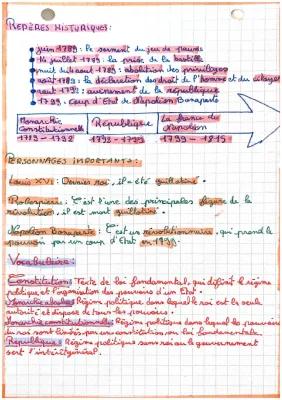 REPÈRES HISTORIQUES:
juin 1789: le serment du jeu de paume
14 juillet 1789: la prise de la bastille
nuit du 4 août: abolition des privilèges
août 1789: la déclaration des droit de l'homme et du citoyen
août 1792: avènement de la république
1799: Coup d'Etat de Napoléon Bonaparte
Monarchie Constitutionnelle
République
La france de Napoléon
1789-1792
1792-1799
1799-1815
PERSONNAGES IMPORTANTS:
Louis XVI: Dernier roi, il a été guillotiné.
Robespierre: C'est l'une des principales figure de la
révolution, il est mort guillotiné.
Napoléon Bonaparte: C'est un révolutionnaire, qui prend le
pouvoir par un coup d'Etat en 1799.
Vocabulaire:
Constitution: Texte de loi fondamental, qui définit le régime
politique et l'organisation des pouvoirs d'un Etat.
Monarchie absolue: Régime politique dans lequel le roi est la seule
autorité et dispose de tous les pouvoirs.
Monarchie constitutionnelle: Régime politique dans lequel les pouvoirs
du roi sont limités par une constitution ou loi fondamentale.
République: Régime politique sans roi où le gouvernement
sert l'intérêt général.